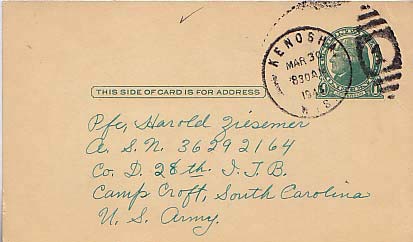 KENOSHA
MAR 30
830 AM
WIS
THIS SIDE OF CARD IS FOR ADDRESS
Pfc. Harold Ziesemer
A. S. N. 36292164
Co. D. 28th. I. T. B.
Camp Croft, South Carolina
U. S. Army.